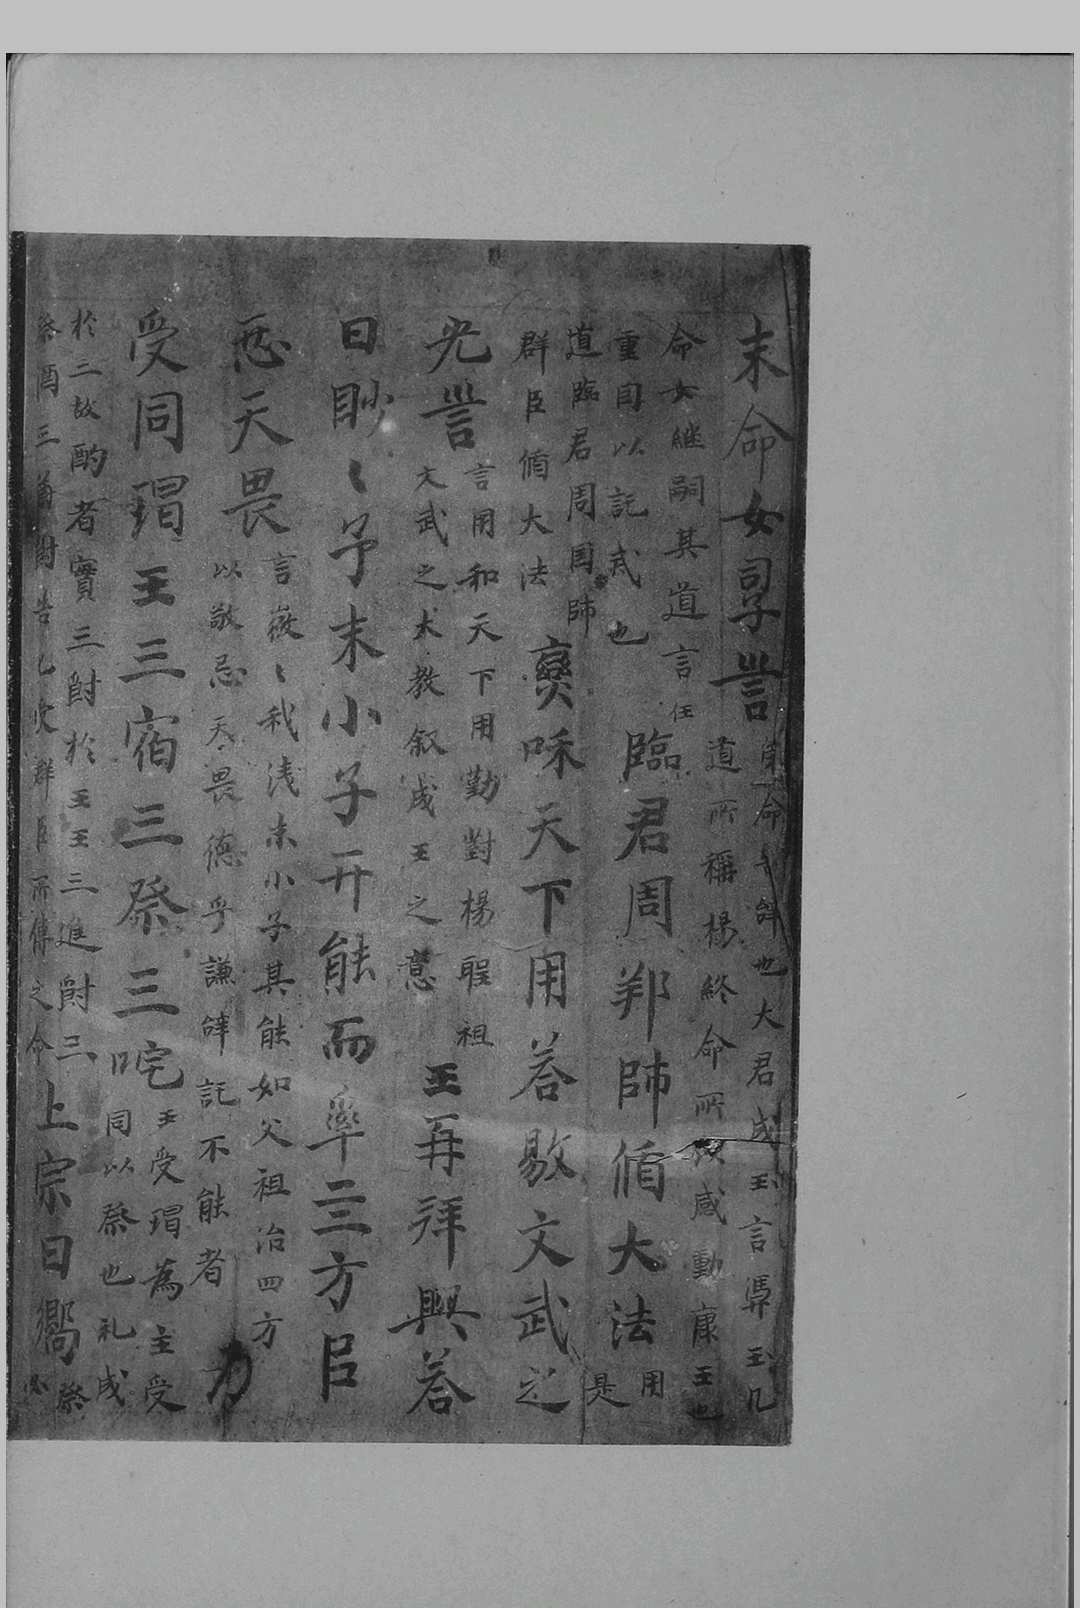 末命女嗣訔冊命之辝也大君成王言馮玉几
道所稱楊終命所以感動康王也
命女継嗣其道言任
重自以託戒也
臨君周邦帥循大法用
是
道臨君周囯帥
群臣循大法
燮咊天下用荅敭文武之
光訔言用和天下用勤對楊聖祖
文武之大教叙成王之意
王再拜興荅
曰眇〻予末小子亓能而率三方吕
忌天畏言微〻我浅末小子其能如父祖治四方
以敬忌天畏德乎謙辝託不能者
乃
受同瑁王三宿三祭三宅王受瑁為主受
同以祭也礼成
於三故酌者實三爵於王王三進爵三
祭酒三爵告已受群臣所傳之命
上宗曰嚮祭
必